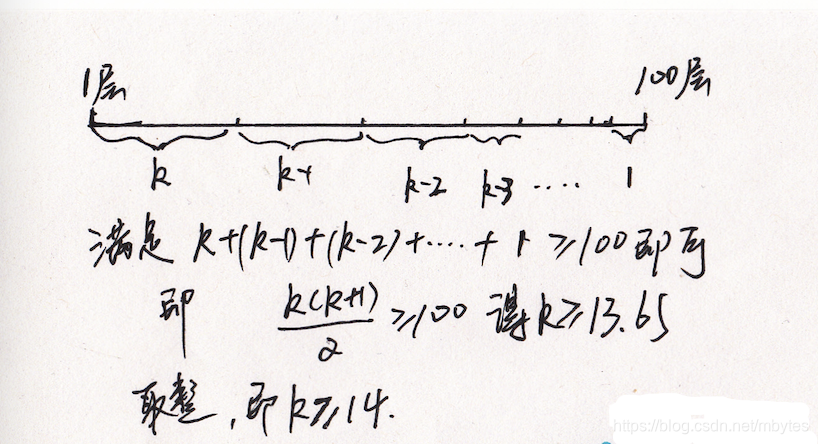 1层 100层
k k-1 k-2 k-3 .... 1
满足 k+(k-1)+(k-2)+....+1 ≥100即可
即 k(k+1)/2 ≥100 得k≥13.65
取整，即k≥14.
https://blog.csdn.net/mbytes